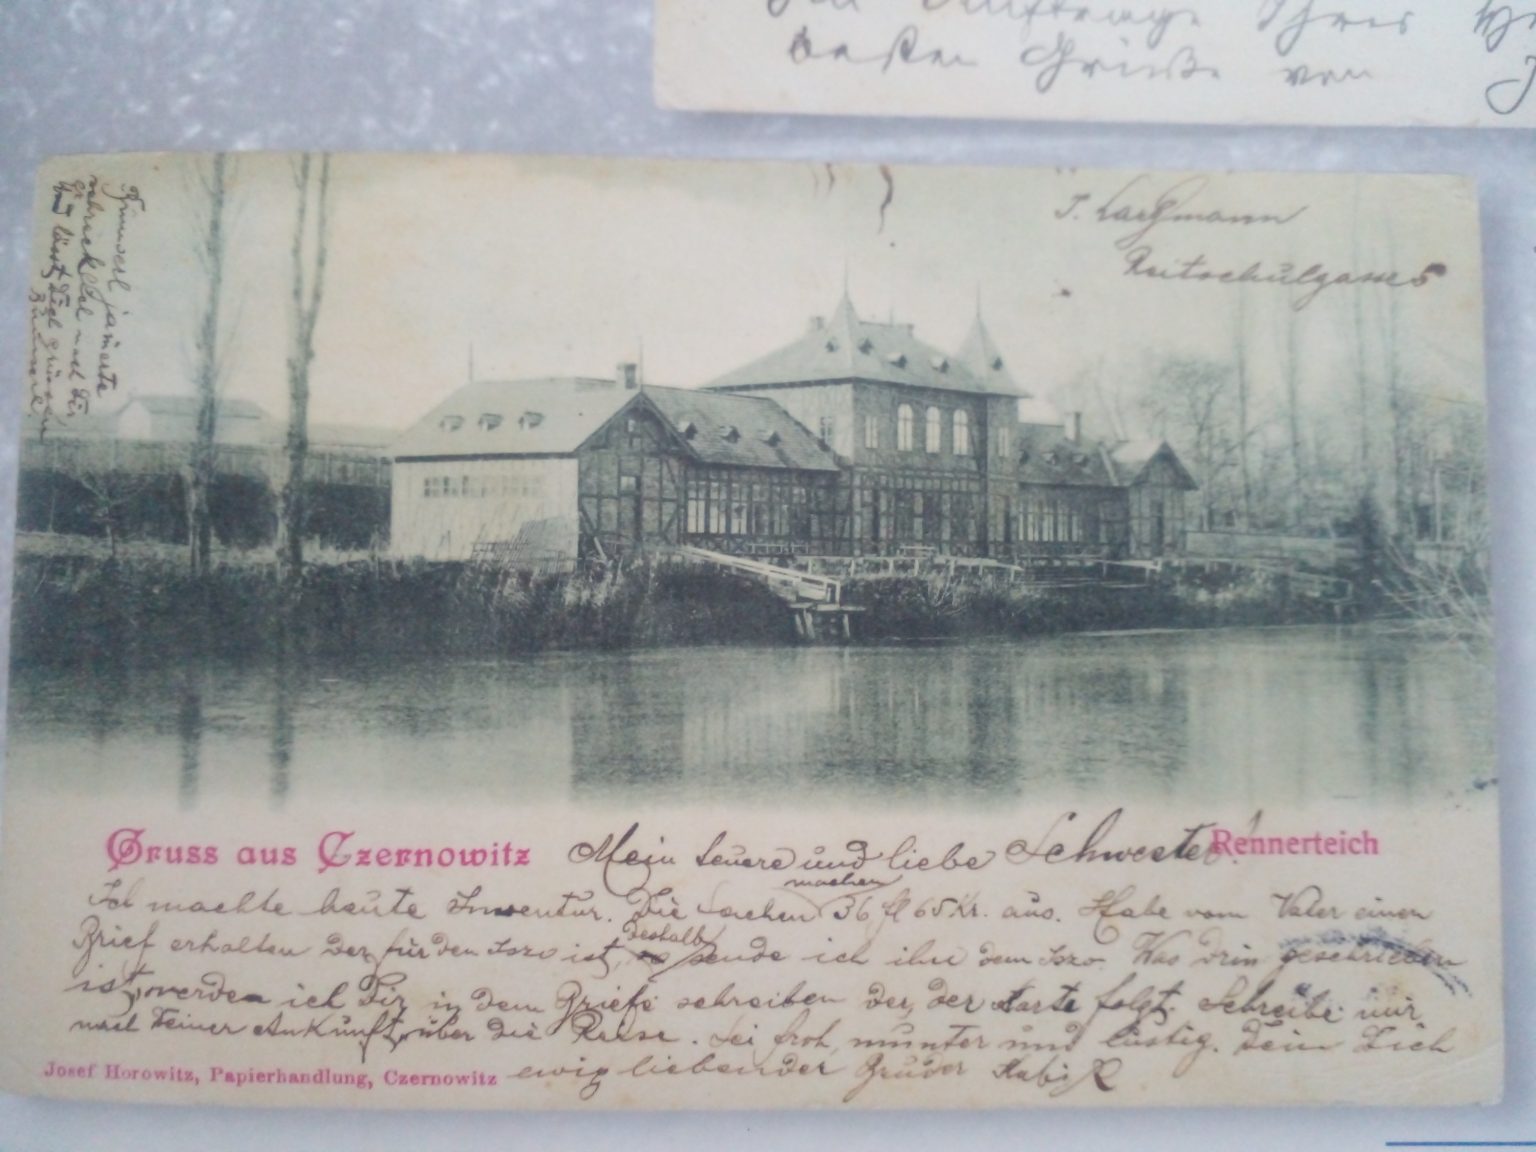 besten Grüße von
Reitschulgasse 5
und lässt Dich grüssen
Gruss aus Czernowitz
Mein teuere und liebe Schwester!
Rennerteich
Ich machte heute Inventur. Die Sachen machen 36 fl 65 Kr. aus. Habe vom Vater einen
Brief erhalten der für den Iszo ist, deshalb sende ich ihn dem Iszo. Was drin geschrieben
ist, werde ich Dir in dem Briefe schreiben der, der Karte folgt. Schreibe mir
nach Deiner Ankunft, über die Reise. Sei froh, munter und lustig. Dein Dich
Josef Horowitz, Papierhandlung, Czernowitz
ewig liebender Bruder